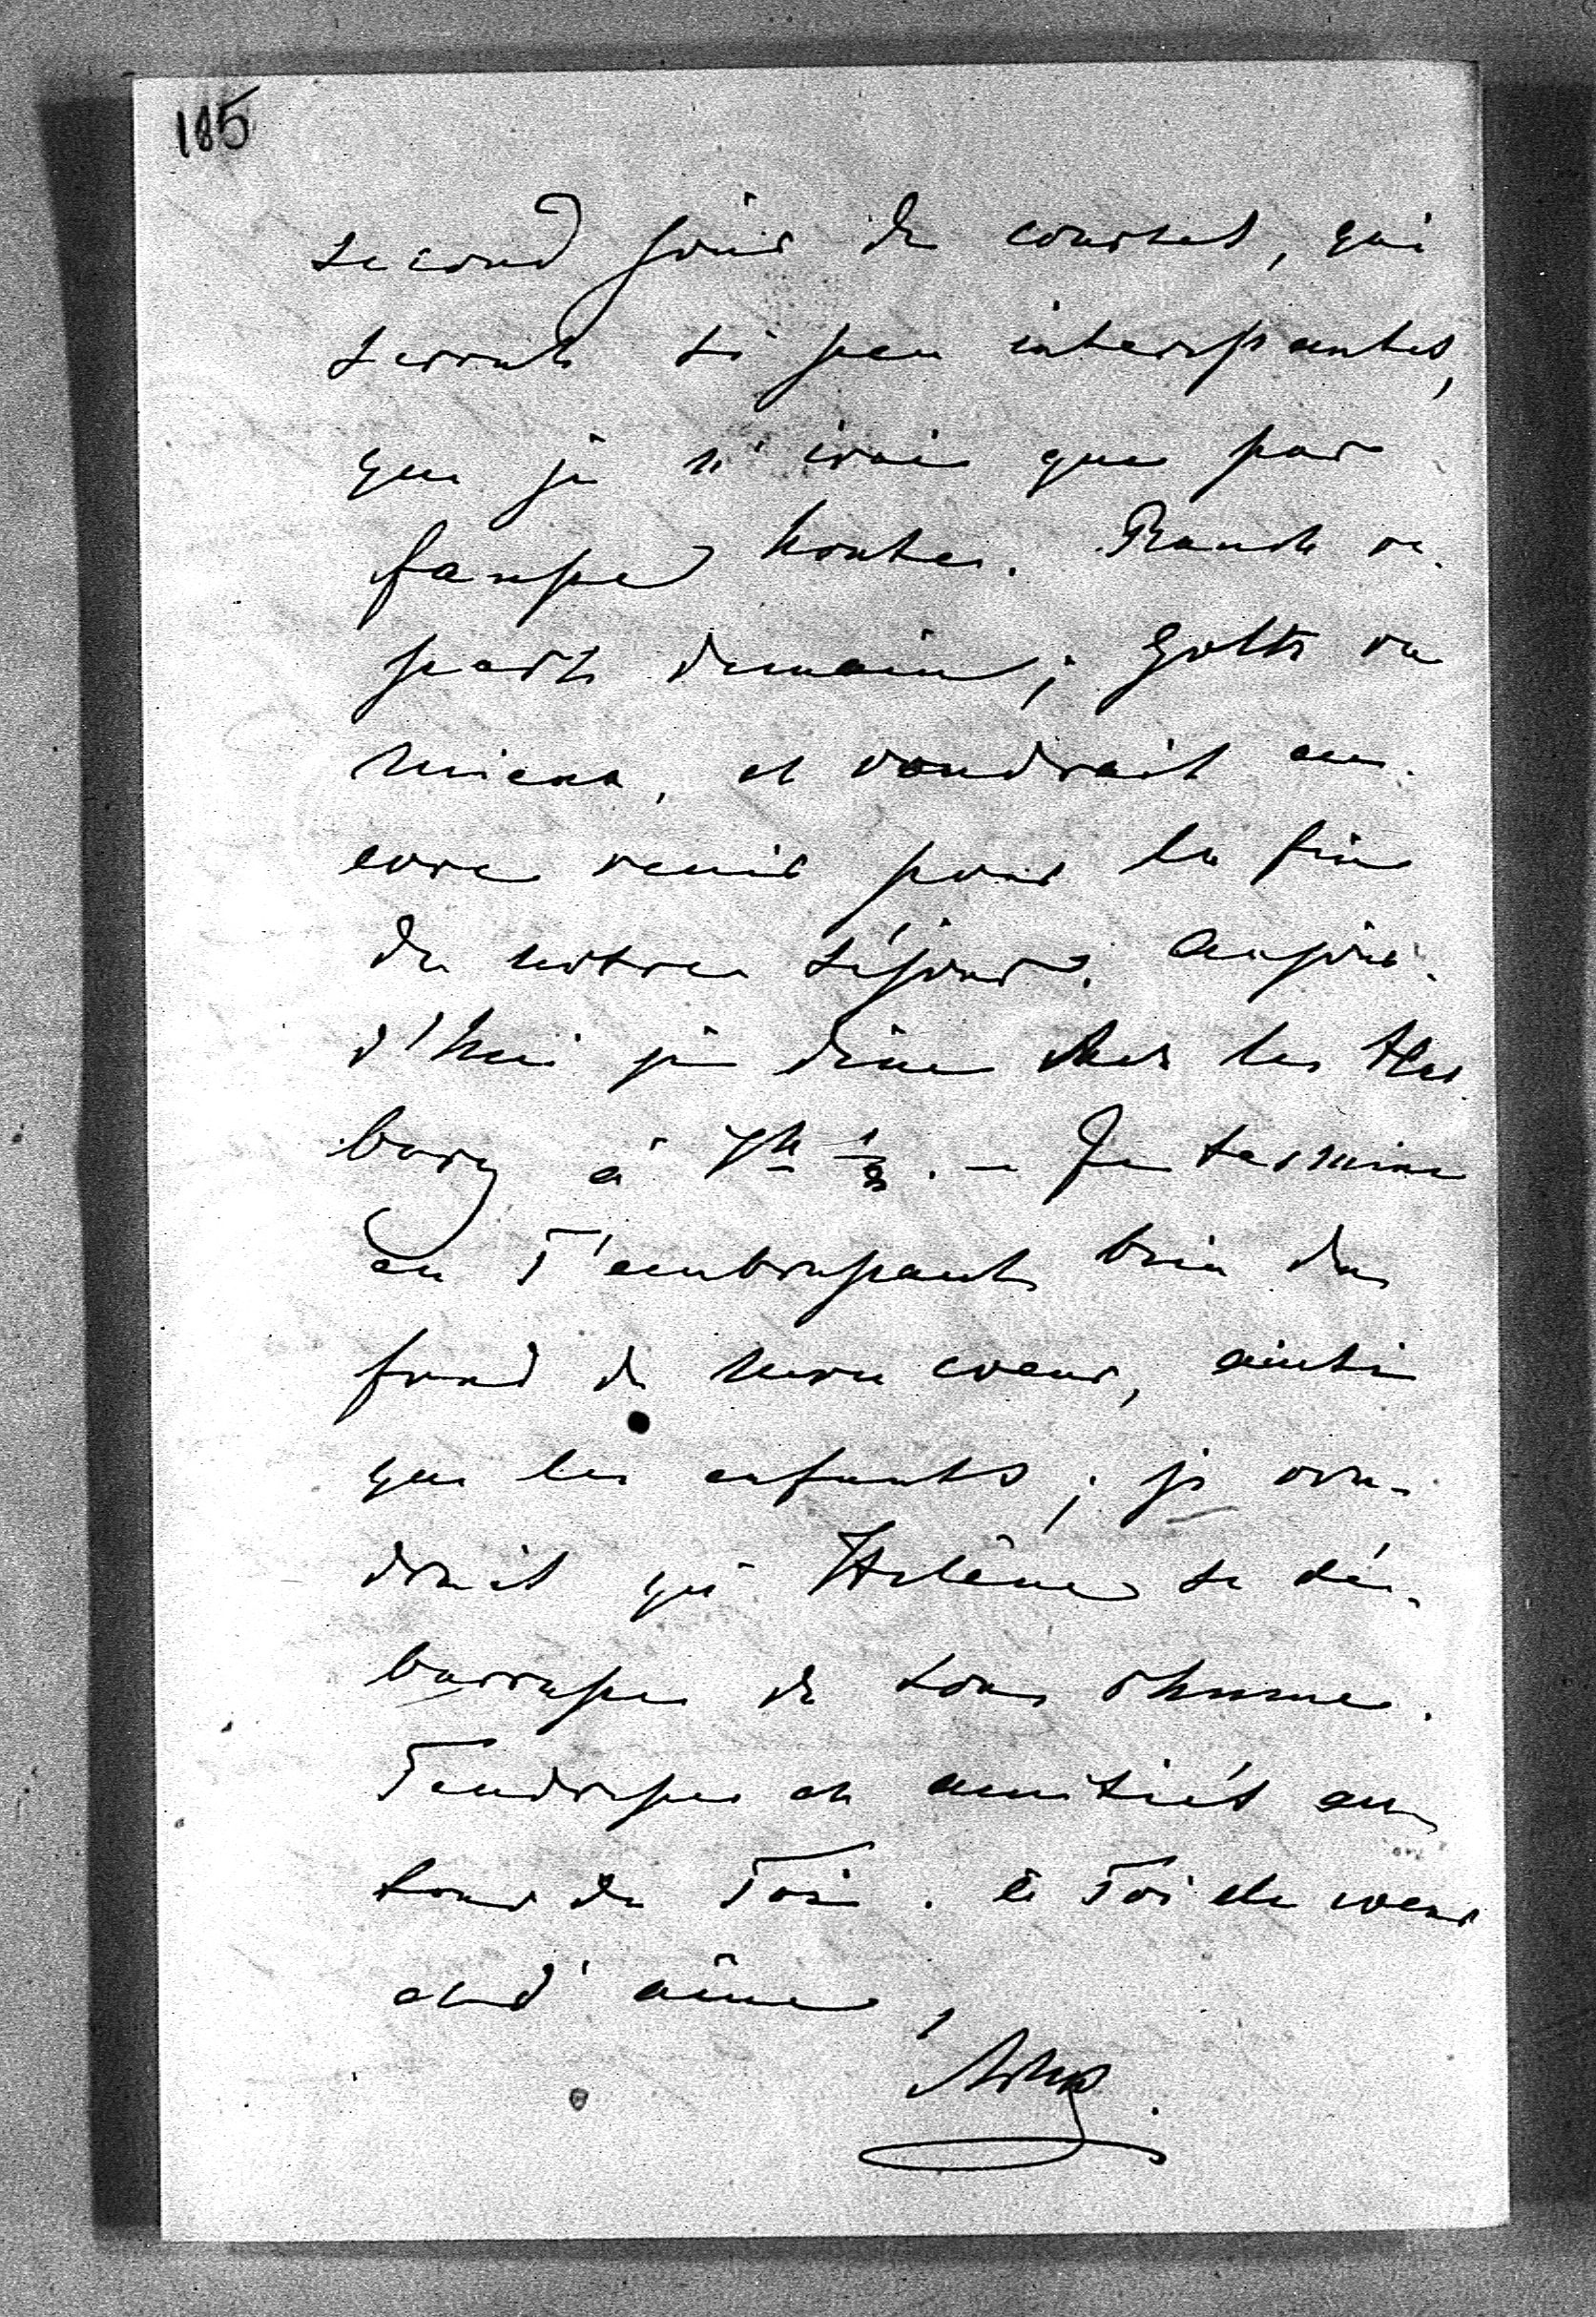 185
second jour de courses, qui
seront si peu interessantes,
que je n'irai que par
fausse honte. Rauch re-
part demain; Goltz va
mieux, et voudrait en-
core venir pour la fin
de notre séjour. Aujour-
d'hui je dine chez les
à 7h 1/2. — Je termine
en T'embrassant bien du
fond de mon coeur, ainsi
que les enfants; je vou-
drais qu'Hélène se dé-
barrasse de son rhume.
Tendresses et amitiés au-
tour de Toi. à Toi de coeur
et d'âme,